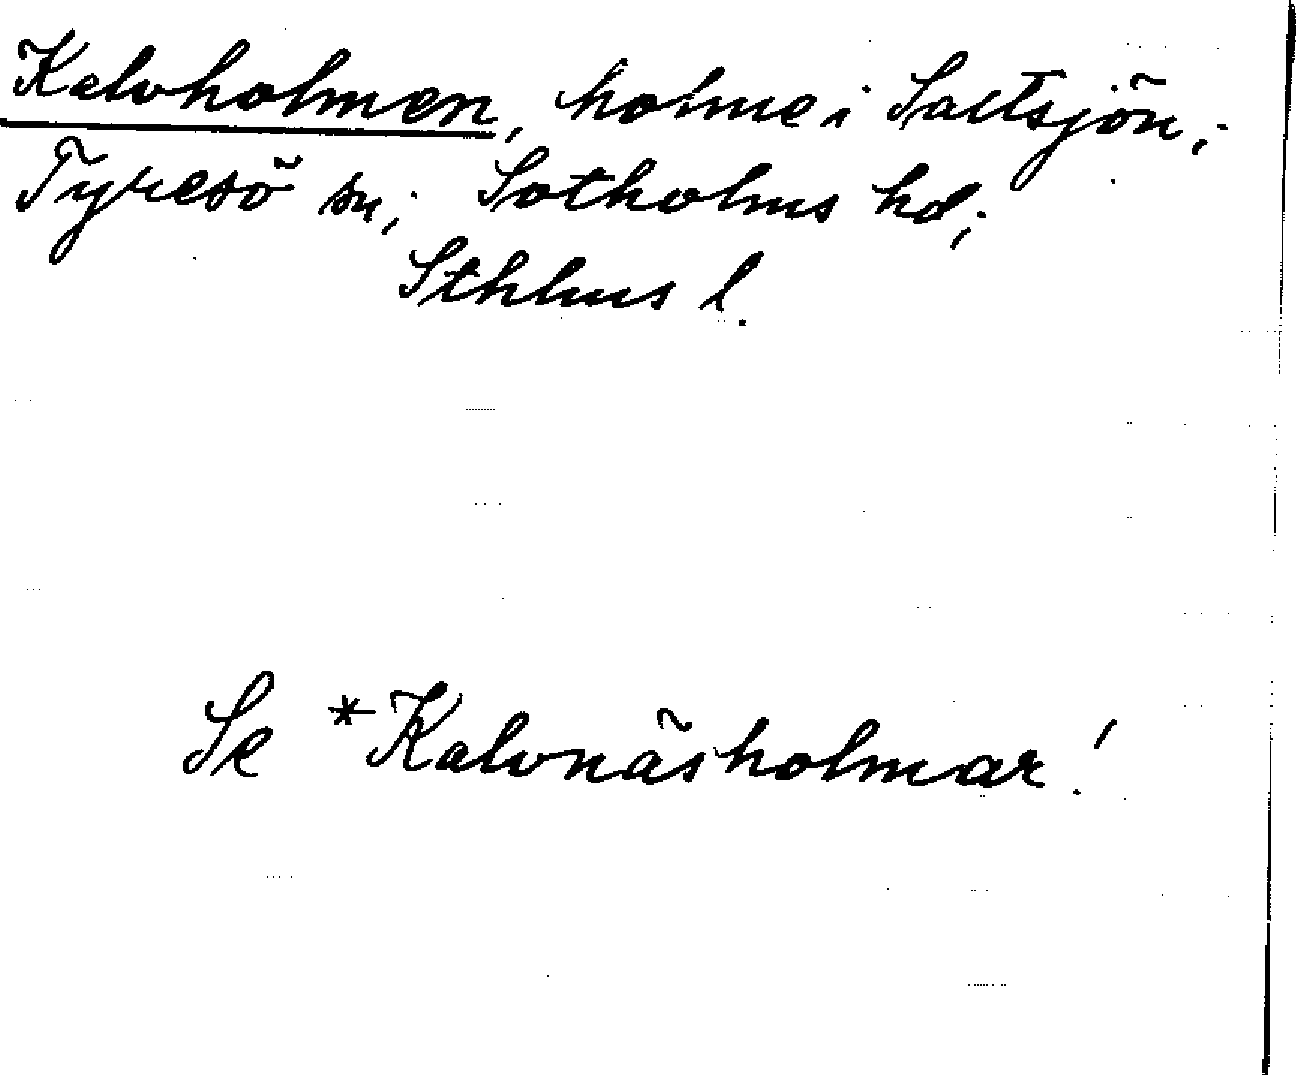 Kalvholmen, holme i Saltsjön;
Tyresö sn; Sotholms hd;
Sthlms l.
Se *Kalvnäsholmar!